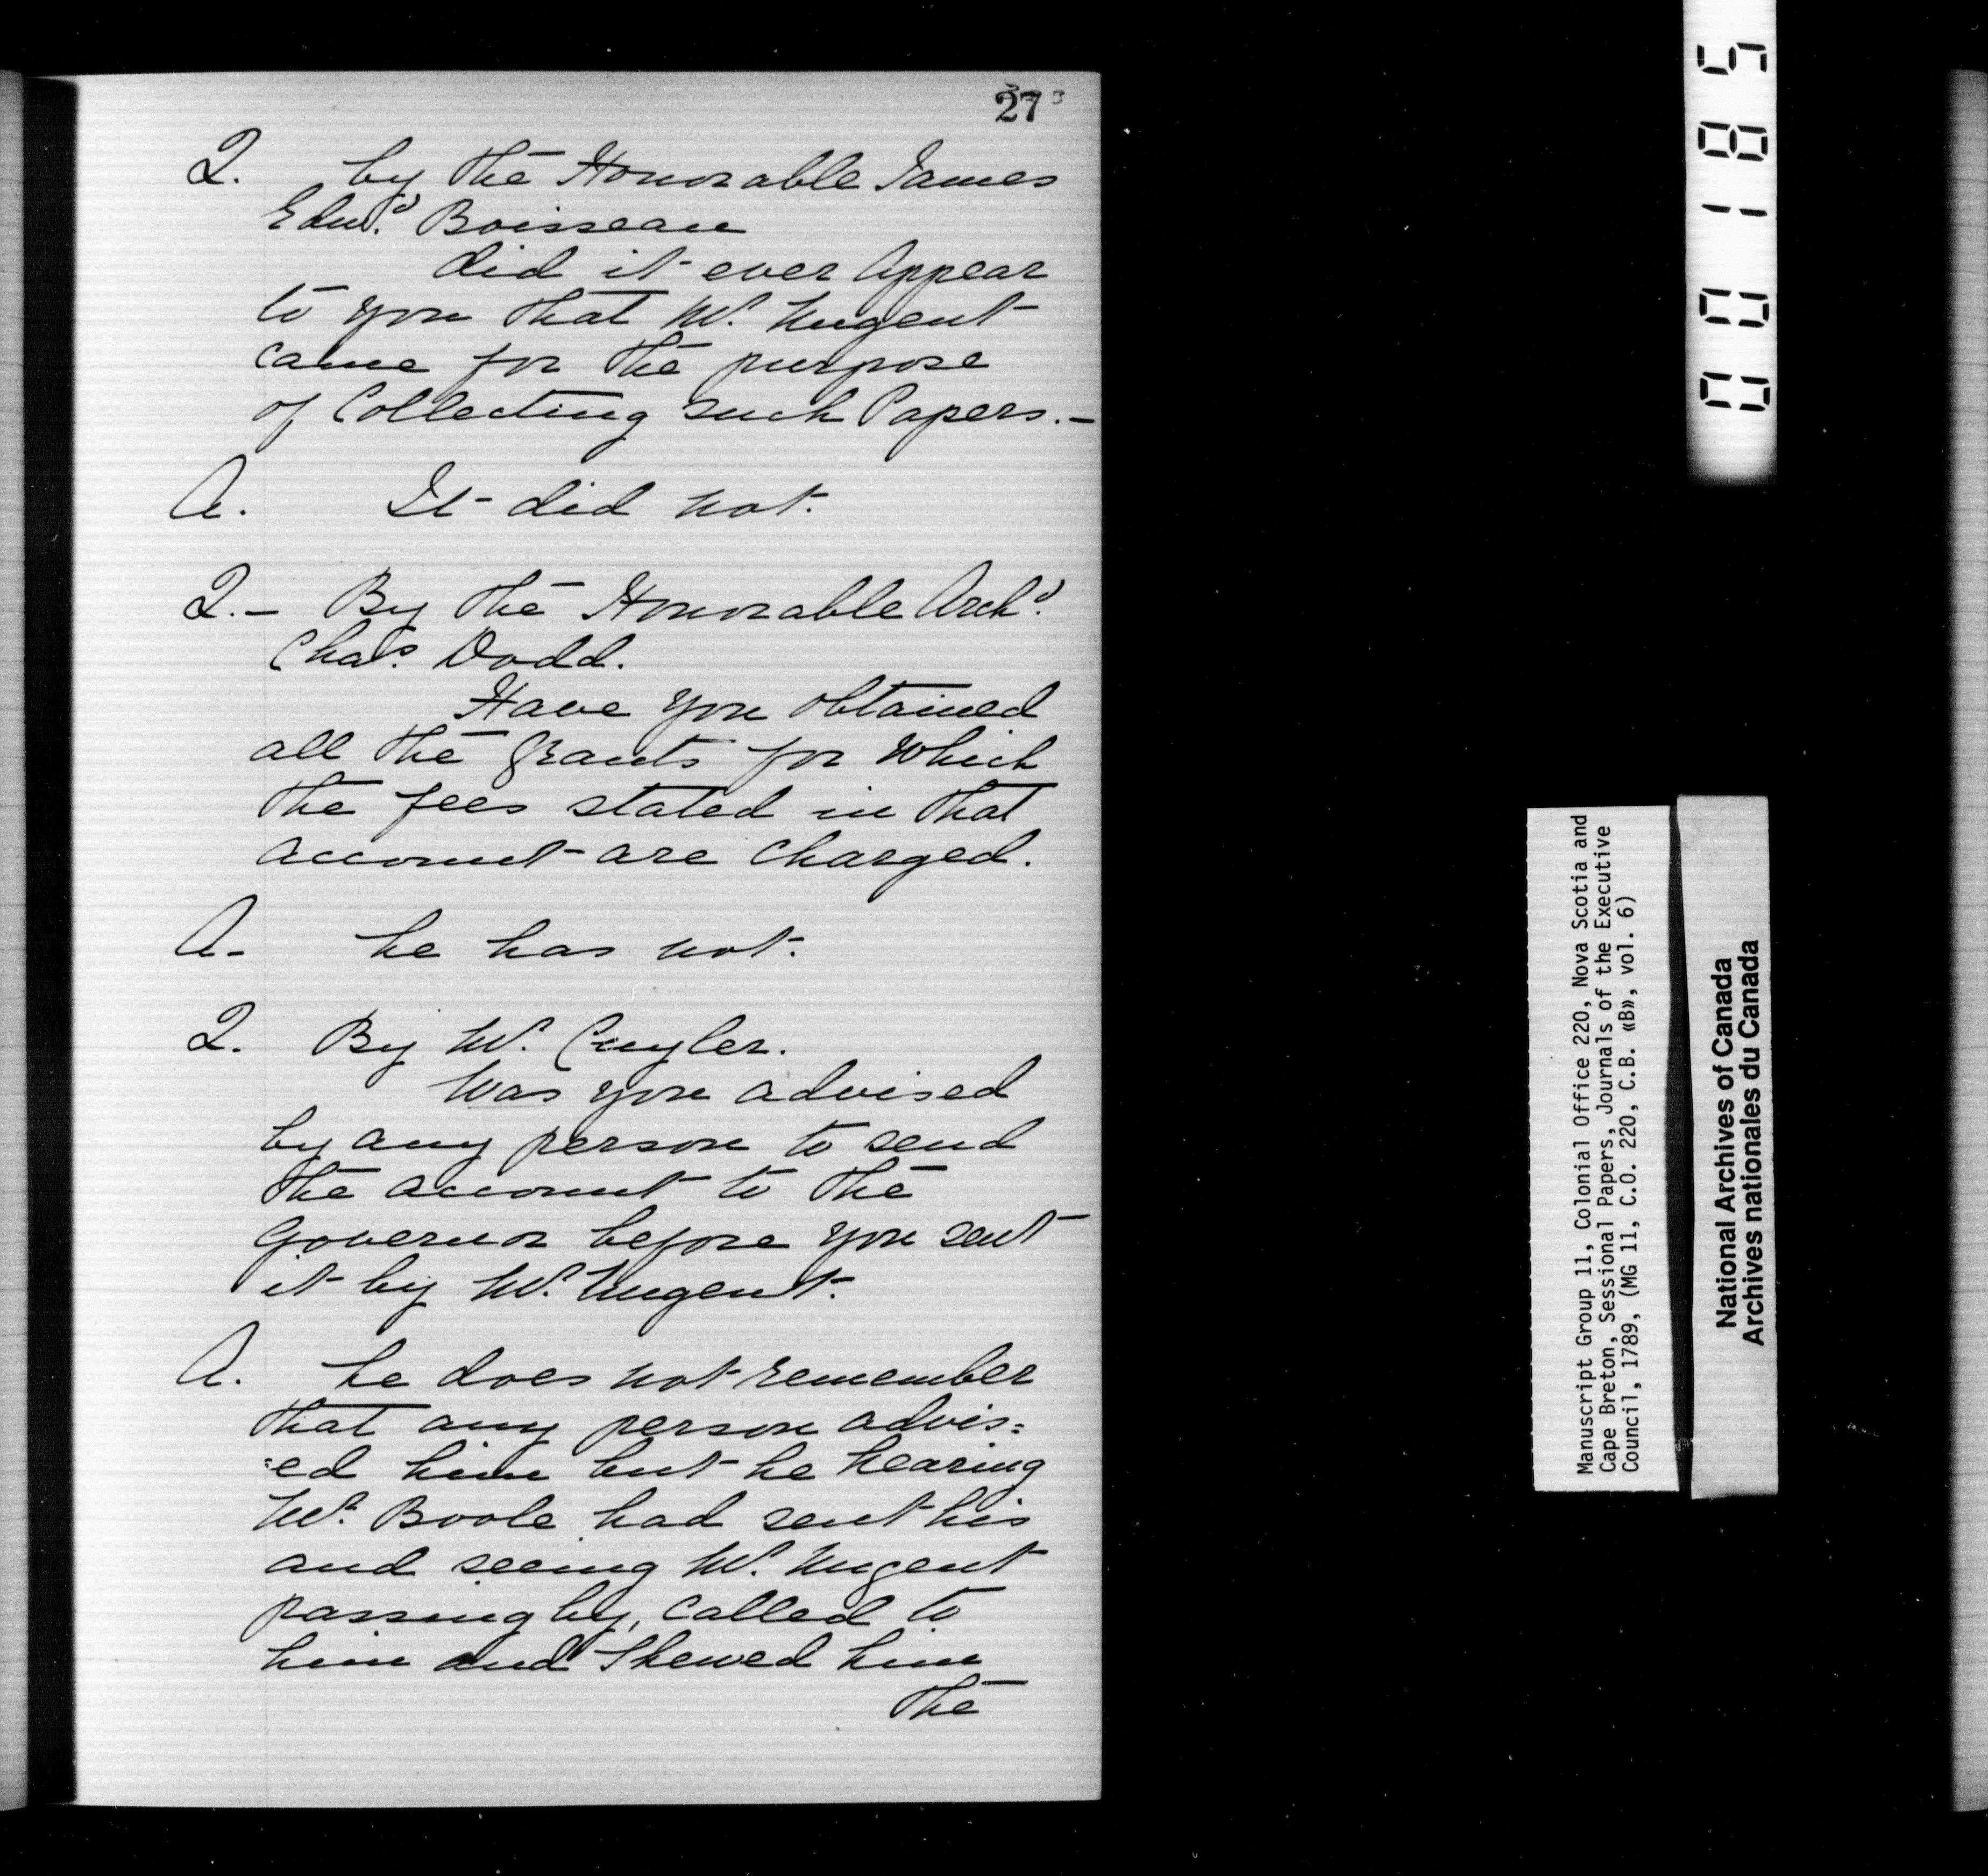 27
Q. by the Honorable James
Edwd. Boisseau
did it ever Appear
to you that Mr. Nugent
came for the purpose
of Collecting such Papers.–
A. It did not.
Q.– By the Honorable Archd.
Chas. Dodd.
Have you obtained
all the Grants for Which
the fees stated in that
account are charged.
A– he has not.
Q. By Mr. Cuyler.
Was you advised
by any person to send
the account to the
Governor before you sent
it by Mr. Nugent.
A. he does not remember
that any person advis=
=ed him but he hearing
Mr. Boole had sent his
and seeing Mr. Nugent
passing by, called to
him and Shewed him
the
000185
Manuscript Group 11, Colonial Office 220, Nova Scotia and
Cape Breton, Sessional Papers, Journals of the Executive
Council, 1789, (MG 11, C.O. 220, C.B. «B», vol. 6)
National Archives of Canada
Archives nationales du Canada